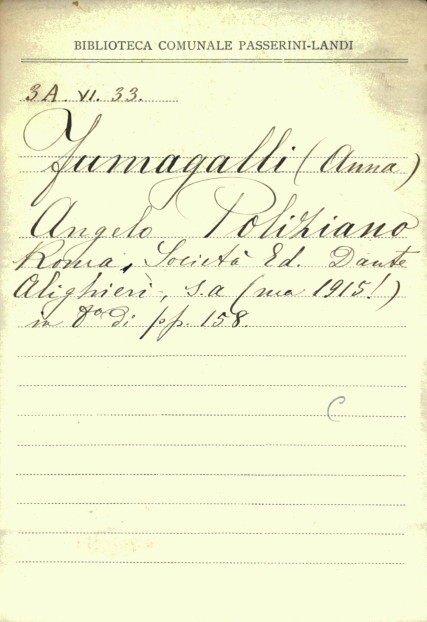 BIBLIOTECA COMUNALE PASSERINI-LANDI
3A. VI. 33.
Fumagalli (Anna)
Angelo Poliziano
Roma, Società Ed. Dante
Alighieri, s.a (ma 1915!)
in 8º di pp. 158.
C